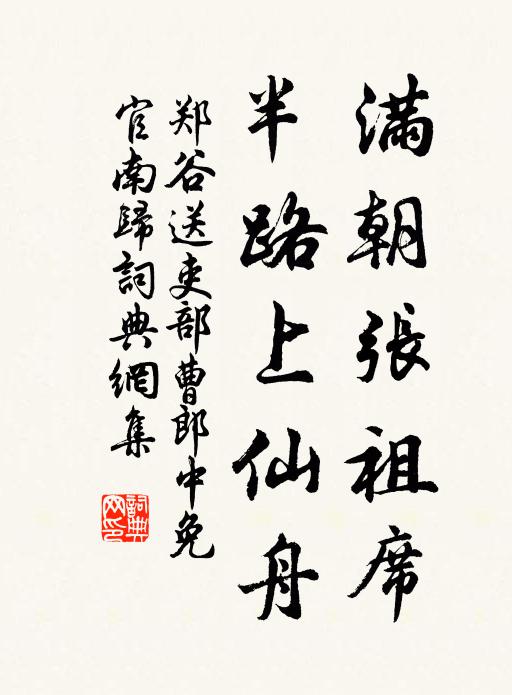 滿朝張祖席
半路上仙舟
郑谷送吏部曹郎中免
官南歸詞典網集
詞典
网印